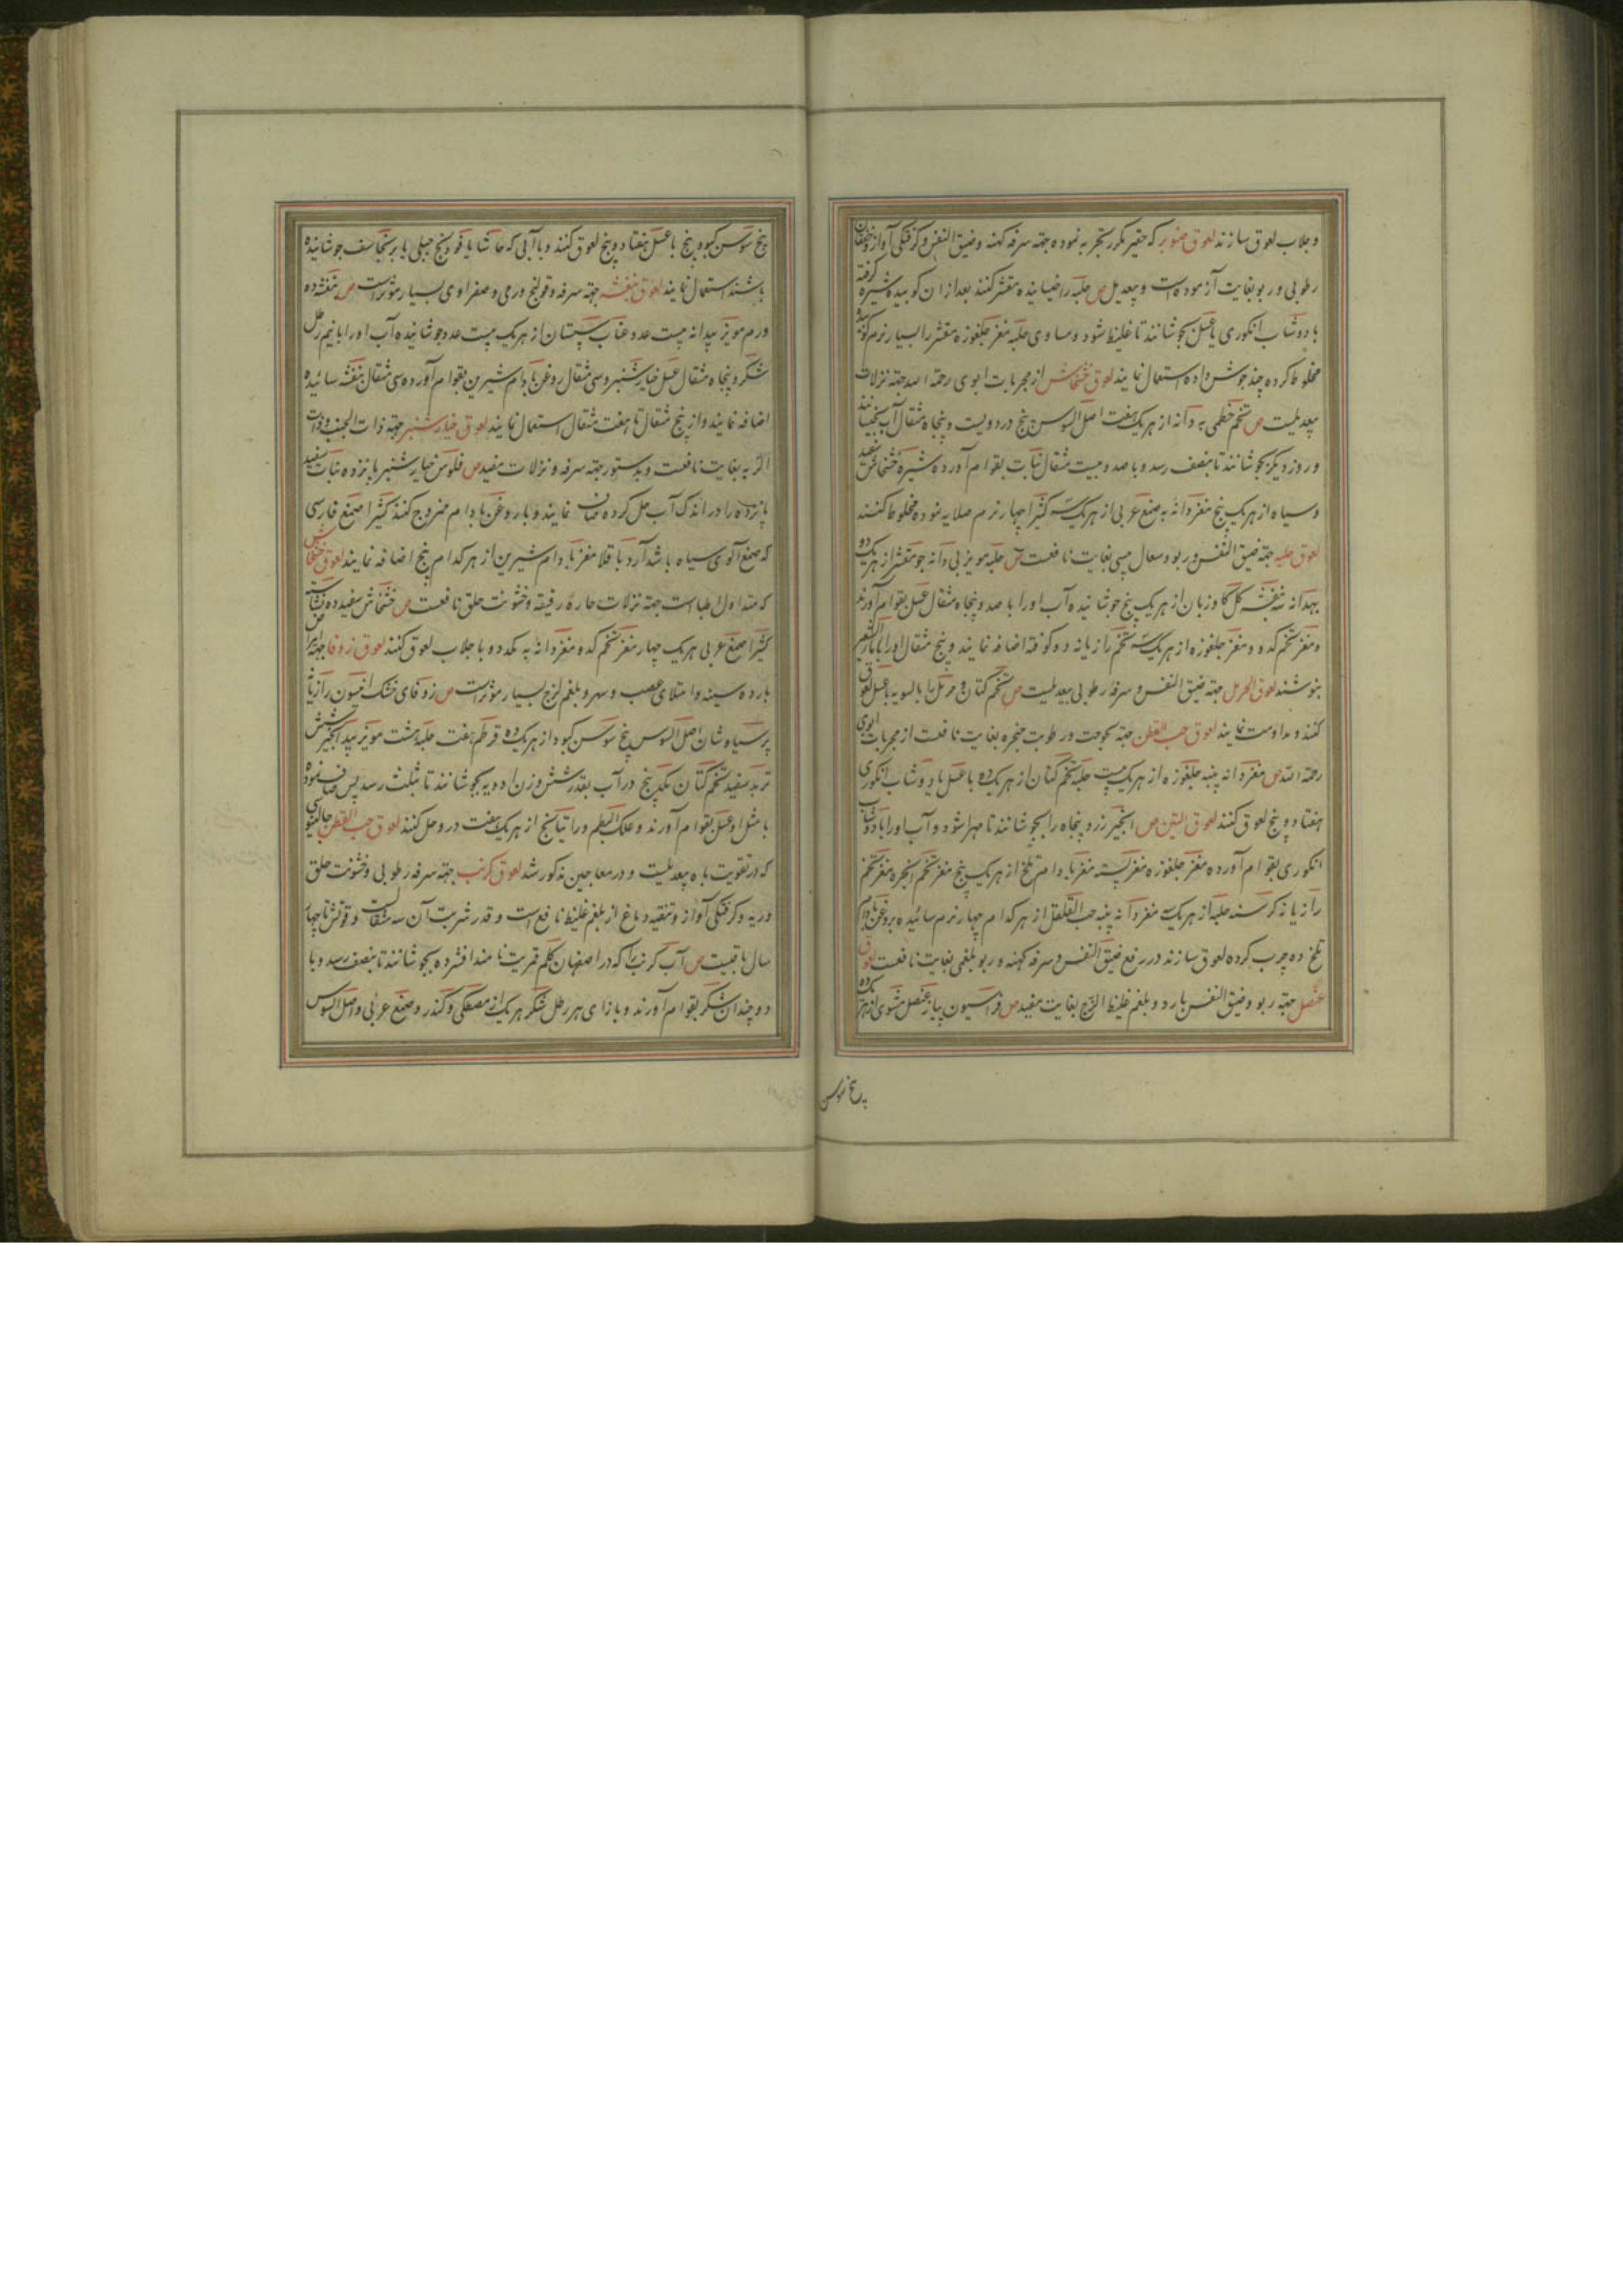 وجلاب لعوق سازند لعوق صنوبر که حقیر مکرر تجربه نموده جهته سرفه کهنه وضیق النفس وکرفتکی آواز وخفقان
رطوبی وربو بغایت آزموده است وبیعدیل ص حلبه را خیسانیده مقشر کنند بعد ازان کوبیده شیره کرفته
با دوشاب انکوری یا عسل بجوشانند تا غلیظ شود ومساوی حلبه مغز جلغوزه مقشر را بسیار نرم کوبیده
مخلوط کرده چند جوش داده استعمال نمایند لعوق خشخاش از مجربات ابوی رحمة الله جهته نزلات
بیعدیلست ص تخم خطمی به دانه از هریک هفت اصل السوس پنج در دویست وپنجاه مثقال آب بخیسانند
وروز دیکر بجوشانند تا بنصف رسد وبا صد وبیست مثقال نبات بقوام آورده شیره خشخاش سفید
وسیاه از هریک پنج مغز دانه به صمغ عربی از هریک سه کثیرا چهار نرم صلایه نموده مخلوط کنند
لعوق حلبه جهته ضیق النفس وربو وسعال یبسی بغایت نافعست ص حلبه مویز بی دانه جو مقشر از هریک ده
بهدانه سه بنفشه کل کاو زبان از هریک پنج جوشانیده آب اورا با صد وپنجاه مثقال عسل بقوام آورند
ومغز تخم کدو ومغز جلغوزه از هریک سه تخم رازیانه دو کوفته اضافه نمایند وپنج مثقال اورا با ماءالشعیر
بنوشند لعوق الحرمل جهته ضیق النفس وسرفه رطوبی بیعدیلست ص تخم کتان وحرمل را بالسویه با عسل لعوق
کنند ومداومت نمایند لعوق حب القطن جهته بحوحت ورطوبت حنجره بغایت نافعست از مجربات ابوی
رحمة الله ص مغز دانه پنبه جلغوزه از هریک بیست حلبه تخم کتان از هریک ده با عسل یا دوشاب انکوری
هفتاد وپنج لعوق کنند لعوق التین ص انجیر زرد پنجاه را بجوشانند تا مهرا شود وآب اورا با دوشاب
انکوری بقوام آورده مغز جلغوزه مغز پسته مغز بادام تلخ از هریک پنج مغز تخم انجره مغز تخم
رازیانه کرسنه حلبه از هریک سه مغز دانه پنبه حب القلقل از هرکدام چهار نرم سائیده بروغن بادام
تلخ ده چرب کرده لعوق سازند در رفع ضیق النفس وسرفه کهنه وربو بلغمی بغایت نافعست لعوق
عنصل جهته ربو وضیق النفس بارد وبلغم غلیظ الزج بغایت مفید ص فراسیون پیاز عنصل مشوی از هریک ده
بیخ سوسن
بیخ سوسن کبود پنج با عسل هفتاد وپنج لعوق کنند وبا آبی که حاشا یا فودنج جبلی یا برنجاسف جوشانیده
باشند استعمال نمایند لعوق بنفشه جهته سرفه وقولنج ورمی وصفراوی بسیار مؤثر است ص بنفشه ده
درم مویز بیدانه بیست عدد عناب سپستان از هریک بیست عدد جوشانیده آب اورا با نیم رطل
شکر وپنجاه مثقال عسل خیارشنبر وسی مثقال روغن بادام شیرین بقوام آورده سی مثقال بنفشه سائیده
اضافه نمایند واز پنج مثقال تا هفت مثقال استعمال نمایند لعوق خیارشنبر جهته ذات الجنب وذات
الریه بغایت نافعست وبدستور جهته سرفه ونزلات مفید ص فلوس خیارشنبر پانزده نبات سفید
پانزده را در اندک آب حل کرده صاف نمایند وبا روغن بادام ممزوج کنند کثیرا صمغ فارسی
که صمغ آلوی سیاه باشد آرد باقلا مغز بادام شیرین از هرکدام پنج اضافه نمایند لعوق خشخاش
که متداول اطباست جهته نزلات حاره رقیقه وخشونت حلق نافعست ص خشخاش سفید ده نشاسته
کثیرا صمغ عربی هریک چهار مغز تخم کدو مغز دانه به یکدو با جلاب لعوق کنند لعوق زوفا جهته امراض
بارده سینه وامتلای عصب وسهر وبلغم لزج بسیار مؤثر است ص زوفای خشک انیسون رازیانه
پرسیاوشان اصل السوس بیخ سوسن کبود از هریک ده قرطم هفت حلبه هشت مویز بیدانه انجیر شش
تربد سفید تخم کتان یکدپنج در آب بقدر شش وزن ادویه بجوشانند تا بثلث رسد پس صاف نموده
با مثل او عسل بقوام آورند وعلک البطم وراتیانج از هریک هفت درو حل کنند لعوق حب القطن جالینوسی
که در تقویت باه بیعدیلست ودر معاجین مذکور شد لعوق کرنب جهته سرفه رطوبی وخشونت حلق
وریه وکرفتکی آواز وتنقیه دماغ از بلغم غلیظ نافع است وقدر شربت آن سه مثقالست وقوتش تا چهار
سال باقیست ص آب کرنب را که در اصفهان کلم قمریت نامند افشرده بجوشانند تا بنصف رسد وبا
دو چندان شکر بقوام آورند وبازای هر رطل شکر هریک از مصطکی وکندر وصمغ عربی واصل السوس